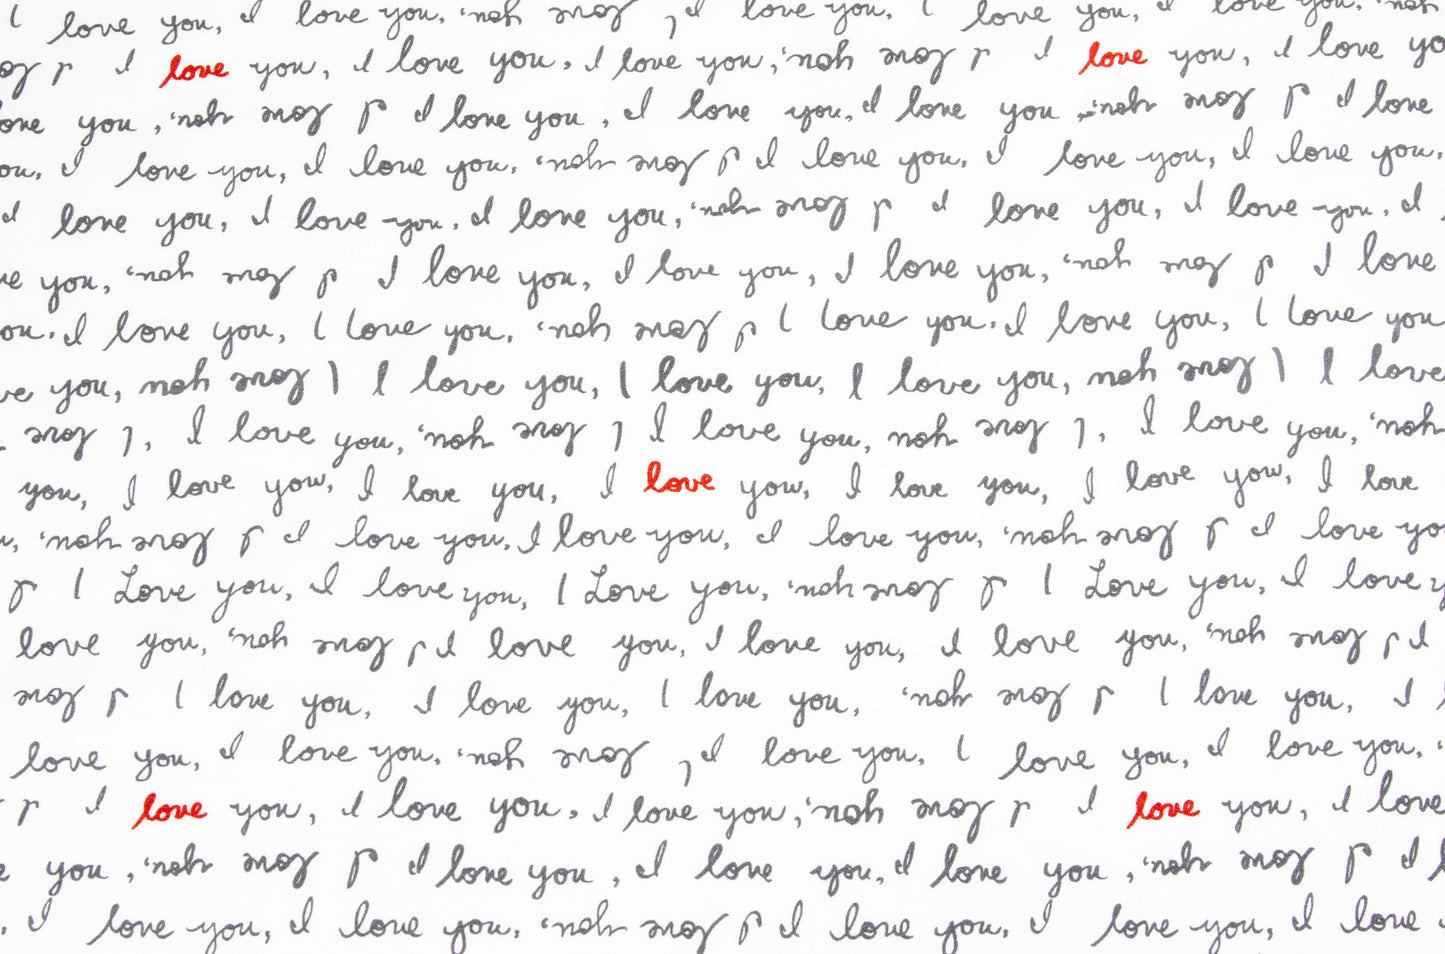 I love you, I love you, I love you, I love you, I love you, I love you, you,
I lo I love you, I love you, I love you, I love you, I love you, I love yo
ove you, I love you, I love you, I love you, I love you, I love you, I love
ou, I love you, I love you, I love you, I love you, I love you, I love you,
I love you, I love you, I love you, I love you, I love you, I love you, I
ve you, I love you, I love you, I love you, I love you, I love you, I love
ou. I love you, I love you, I love you, I love you. I love you, I love you
ve you, I love you, I love you, I love you, I love you, I love you, I love
I love I love you, I love you, I love you, I love you, I love you, you,
you, I love you, I love you, I love you, I love you, I love you, I love
u, I love you, I love you, I love you, I love you, I love you, I love yo
I I Love you, I love you, I Love you, I love you, I Love you, I love y
love you, I love you, I love you, I love you, I love you, I love you, I
I love I love you, I love you, I love you, I love you, I love you, I
love you, I love you, I love you, I love you, I love you, I love you,
I I love you, I love you, I love you, I love you, I love you, I love
you, I love you, I love you, I love you, I love you, I love you, I
I love you, I love you, I love you, I love you, I love you, I love